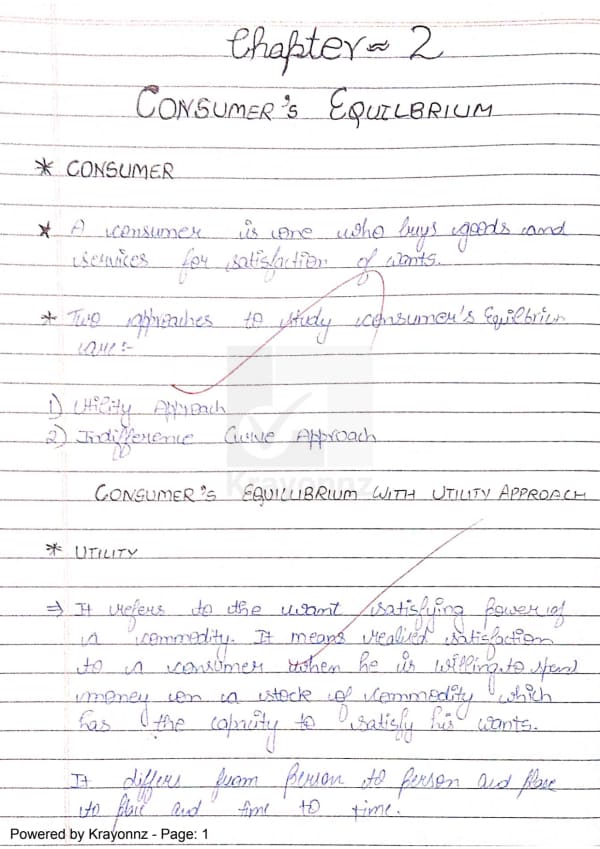 Chapter ≈ 2
CONSUMER'S EQUILBRIUM
* CONSUMER
* A consumer is one who buys goods and
services for satisfaction of wants.
* Two approaches to study consumer's Equilbrium
are:-
1) Utility Approach
2) Indifference Curve Approach
Krayonnz
CONSUMER'S EQUILIBRIUM WITH UTILITY APPROACH
* UTILITY
⇒ It refers to the want satisfying power of
a commodity. It means realised satisfaction
to a consumer when he is willing to spend
money on a stock of commodity which
has the capacity to satisfy his wants.
It differs from person to person and place
to place and time to time.
Powered by Krayonnz - Page: 1